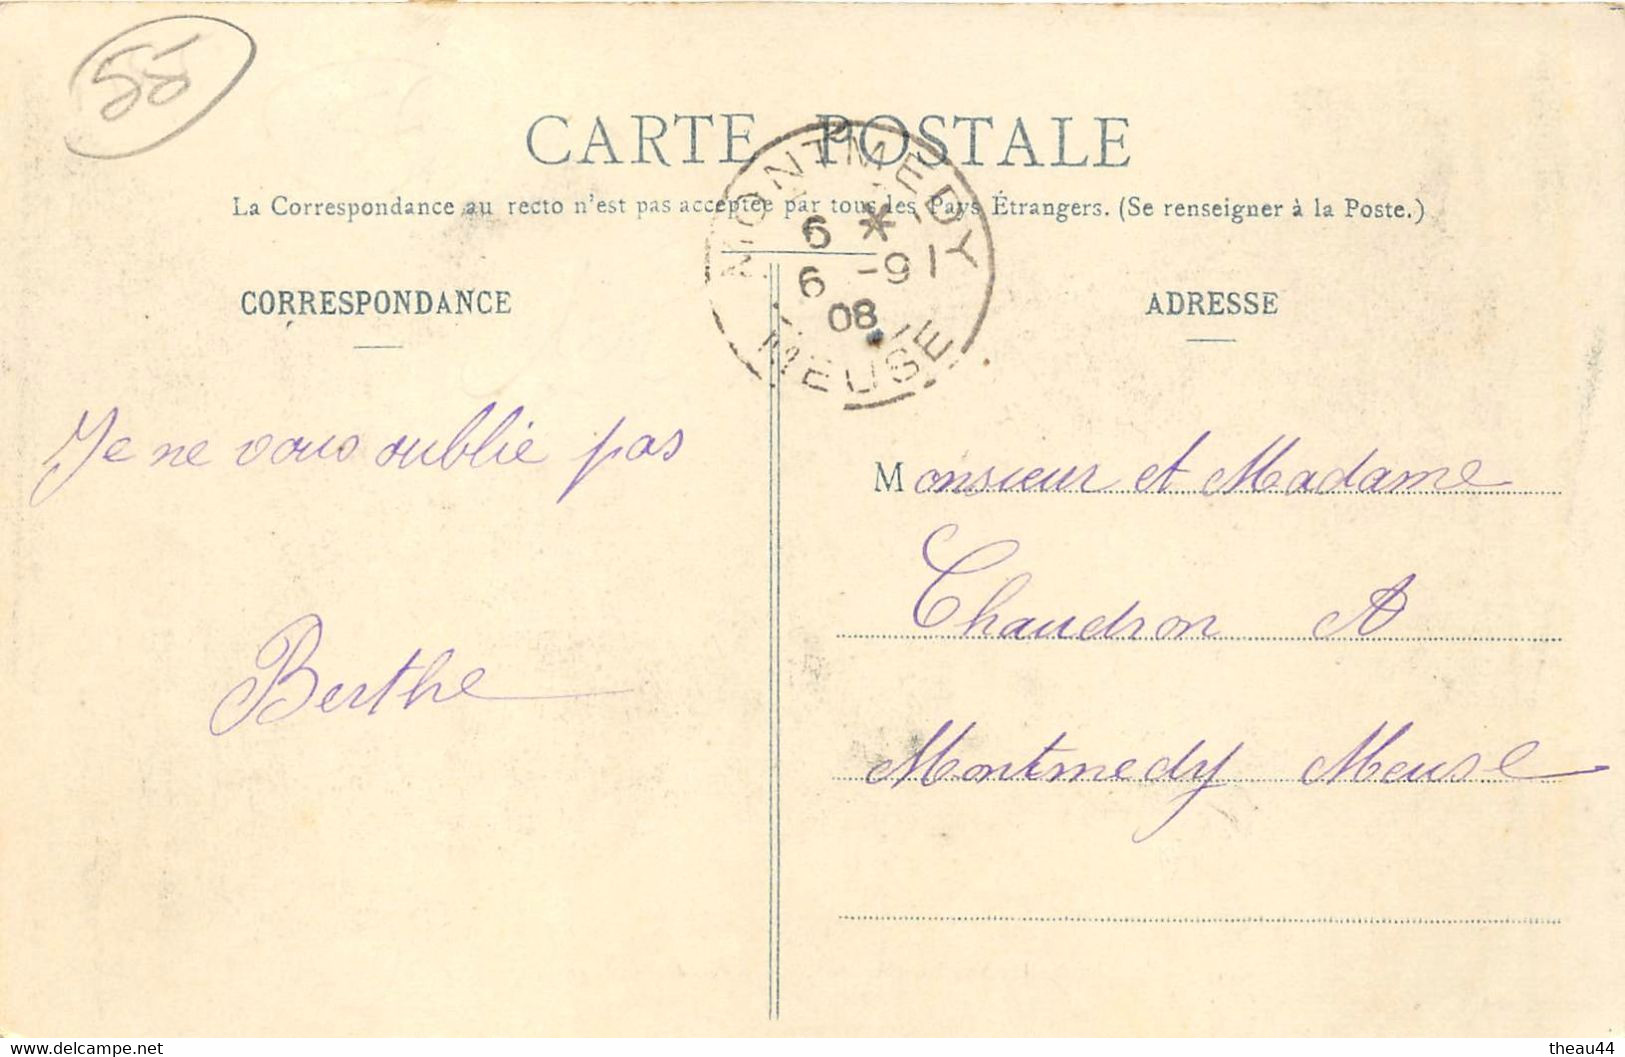 55
CARTE POSTALE
La Correspondance au recto n'est pas acceptée par tous les Pays Étrangers. (Se renseigner à la Poste.)
MONTMEDY
6 *
6 -9
08
MEUSE
CORRESPONDANCE
Je ne vous oublie pas
Berthe
ADRESSE
Monsieur et Madame
Chaudron A
Montmedy Meuse
www.delcampe.net
theau44